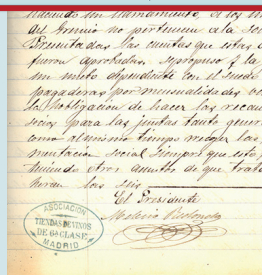 haciendo un llamamiento, si los in
del Gremio no pertenecen a la Soc
Presentadas las cuentas que estas a
fueron aprobadas, se propuso y la
un meto dependiente con el sueldo
pagaderas por mensualidades
la obligacion de hacer las recau
socios para las juntas tanto gener
como al mismo tiempo recoger las
mentacion social siempre que esto
asuntos de que trata
las seis
El Presidente
ASOCIACION
TIENDAS DE VINOS
DE 6ª CLASE
MADRID